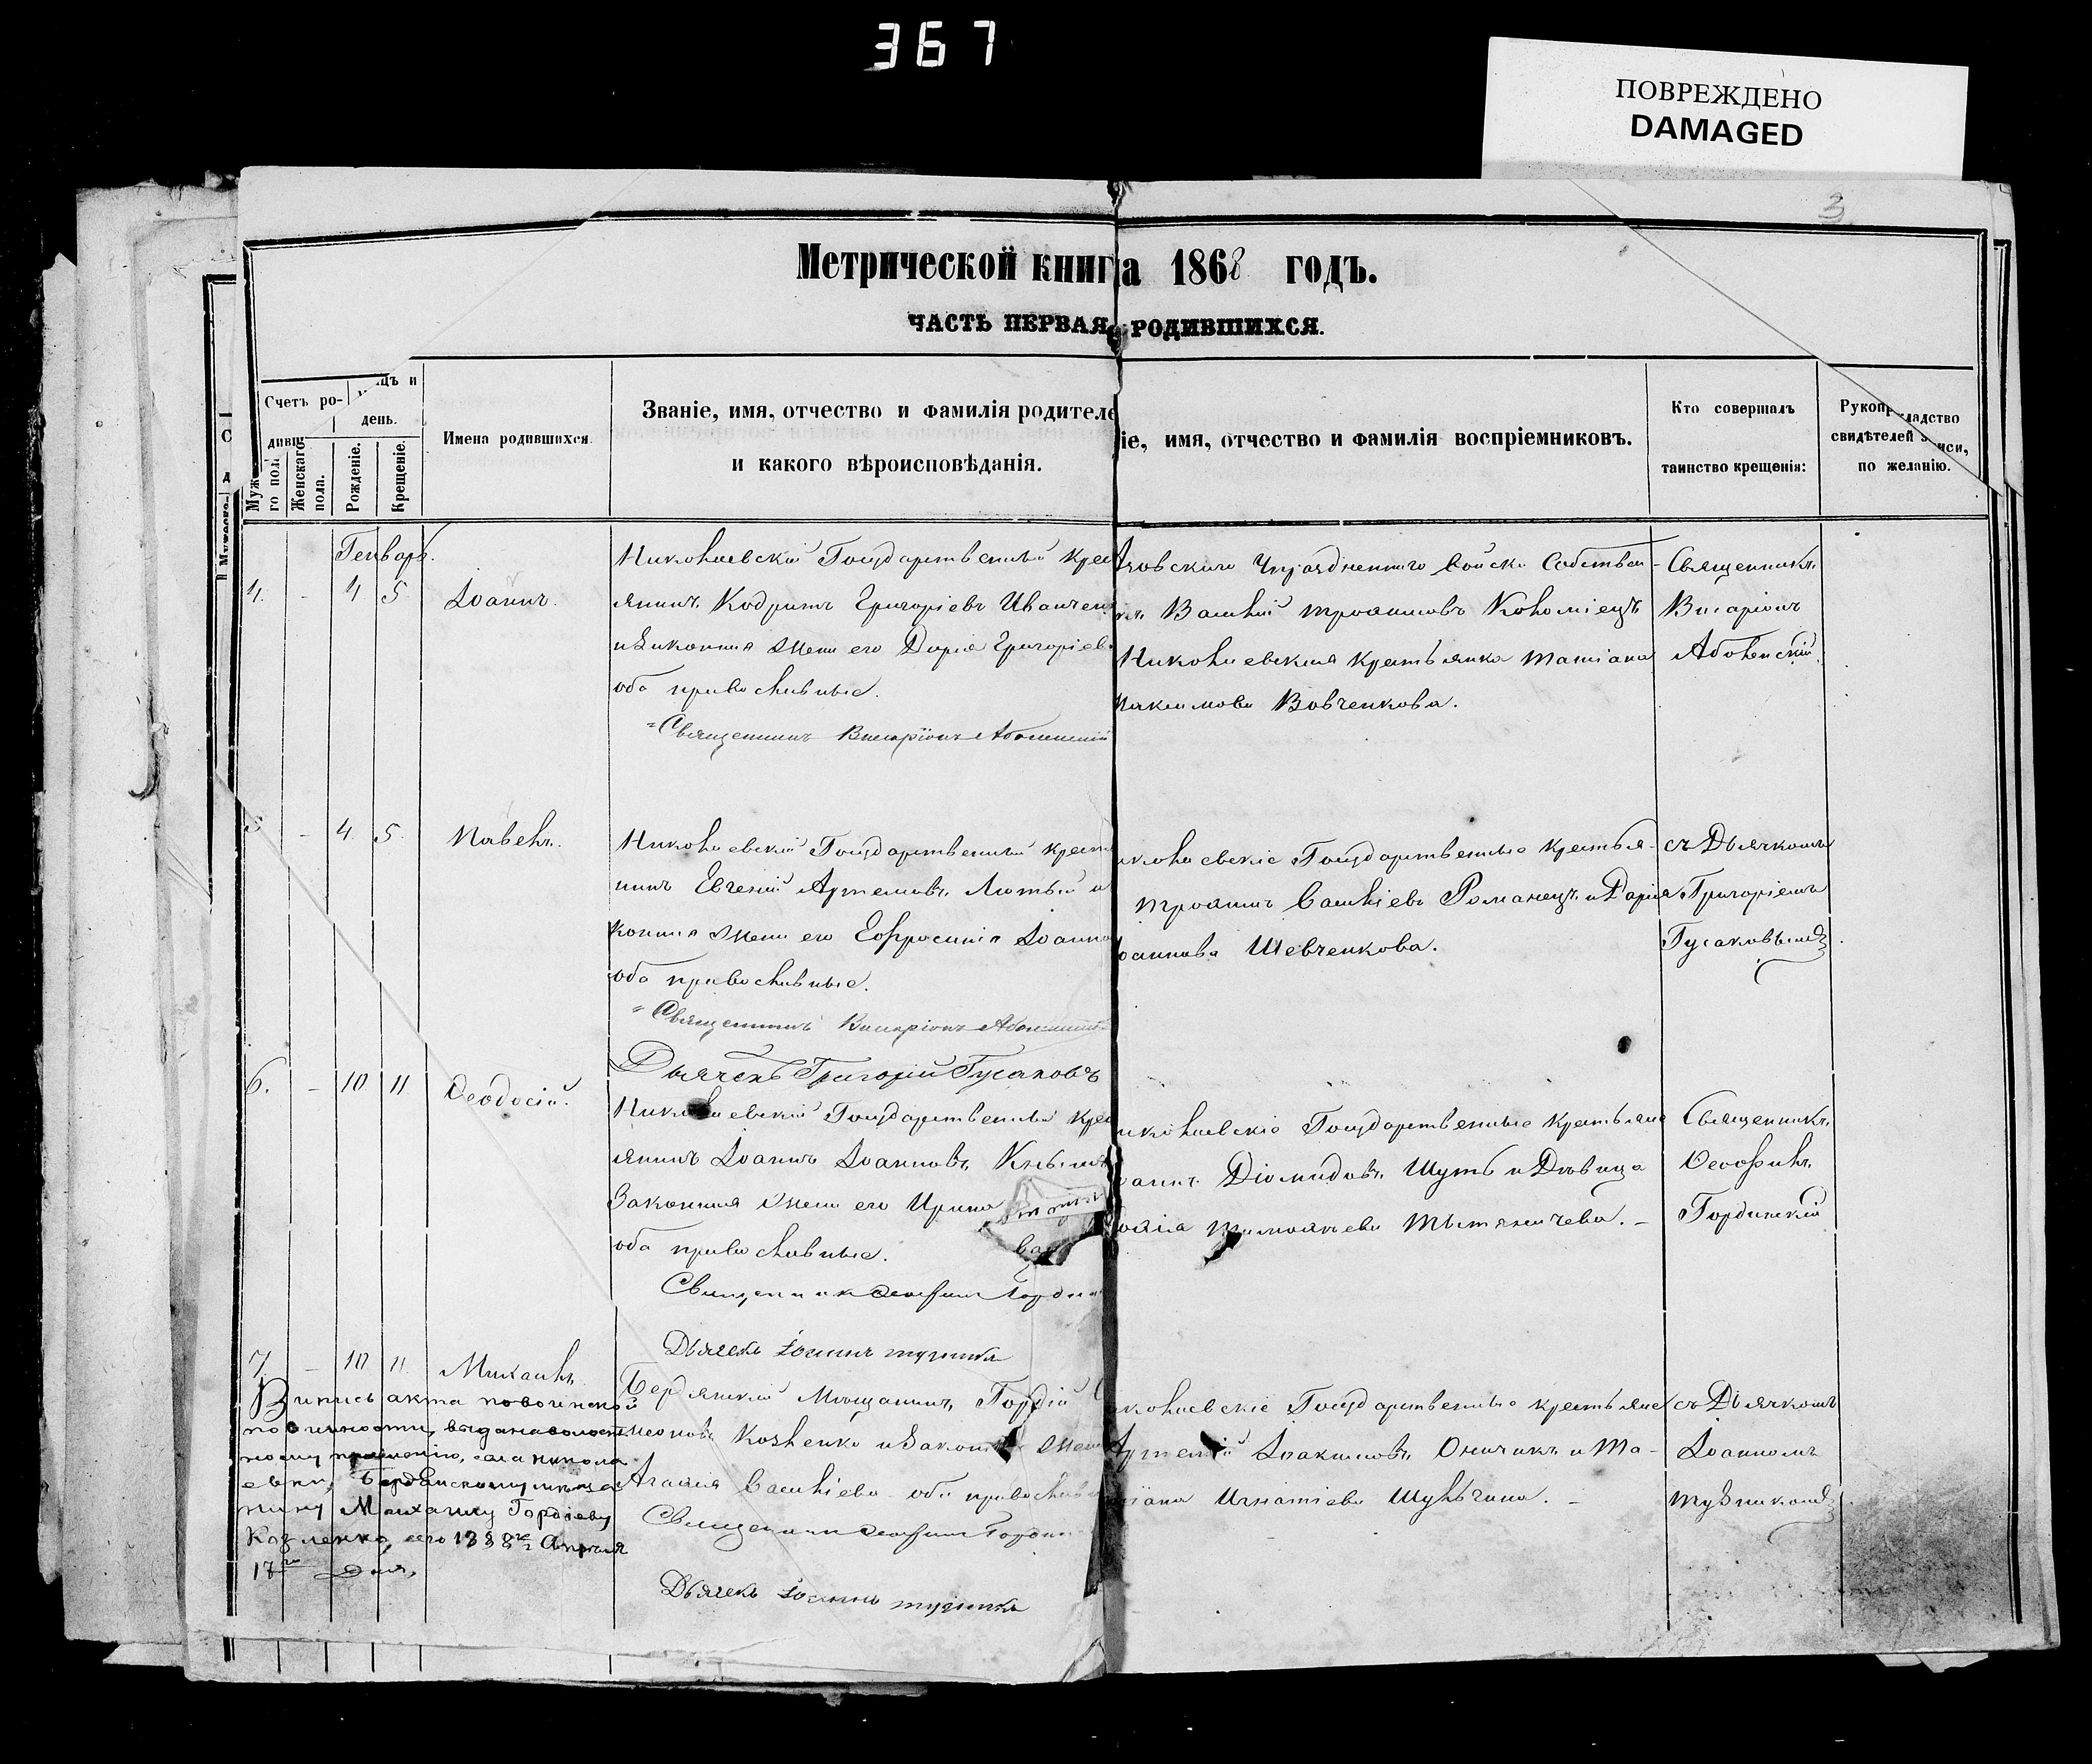 367
ПОВРЕЖДЕНО
DAMAGED
3
Метрической книга 1868 годъ.
ЧАСТЬ ПЕРВАЯ РОДИВШИХСЯ.
Счетъ ро-
день.
Женскаго пола.
Рожденіе.
Крещеніе.
Имена родившихся.
Званіе, имя, отчество и фамилія родителе
и какого вѣроисповѣданія.
іе, имя, отчество и фамилія воспріемниковъ.
Кто совершалъ
таинство крещенія:
свидѣтелей
по желанію.
Генварь.
4. - 4 5 Іоаннъ.
Николаевскій Государственный крес
янинъ Кодратъ Григорієвъ Иванчен
и законная жена его Дарія Григоріев
оба православные.
Священникъ Виссаріонъ Аболенскій
Азовского Упраздненнаго войска
Василій Трофимовъ Коломіецъ
Николаевская крестьянка Татіана
Максимова Вовченкова.
Священникъ
Висаріонъ
Аболенскій.
5 - 4. 5. Павелъ.
Николаевскій Государственный крестья
нинъ Евгеній Артемовъ Лютый и
конная жена его Ефросинія Іоанно
оба православные.
Священникъ Виссаріонъ Аболенскій
Дьячекъ Григорій Гусаковъ
иколаевскіе Государственные крестья-
Трофимъ Савеліевъ Романецъ и Дарія
оаннова Шевченкова.
съ Дьячкомъ
Григоріемъ
Гусаковымъ
6. - 10 11 Ѳеодосій.
Николаевскій Государственный крес
янинъ Іоаннъ Іоанновъ
Законная жена его Ирина
оба православные.
Священникъ Ѳеофилъ
Дьячекъ Іоаннъ
иколаевскіе Государственные крестьяне
Діомидовъ Шуть и Дѣвица
Священникъ
Ѳеофилъ
Гординскій
7. - 10 11. Михаилъ
Бердянскій Мѣщанинъ Гордій
меоновъ Козленко и законная жена
Агафія Савеліева оба православные
Священникъ Ѳеофилъ
Дьячекъ Іоаннъ
иколаевскіе Государственные крестьяне
Артемій Іоакимовъ Оничикъ и Та-
іана Игнатіева
съ Дьячкомъ
Іоанномъ
Випись акта по воинской
повинности, выдана волост
ному правленію, села Никола
евки, Бердянскому мѣща
нину Михаилу Гордіеву
Козленко, его 1888 го Апреля
17 го дня.